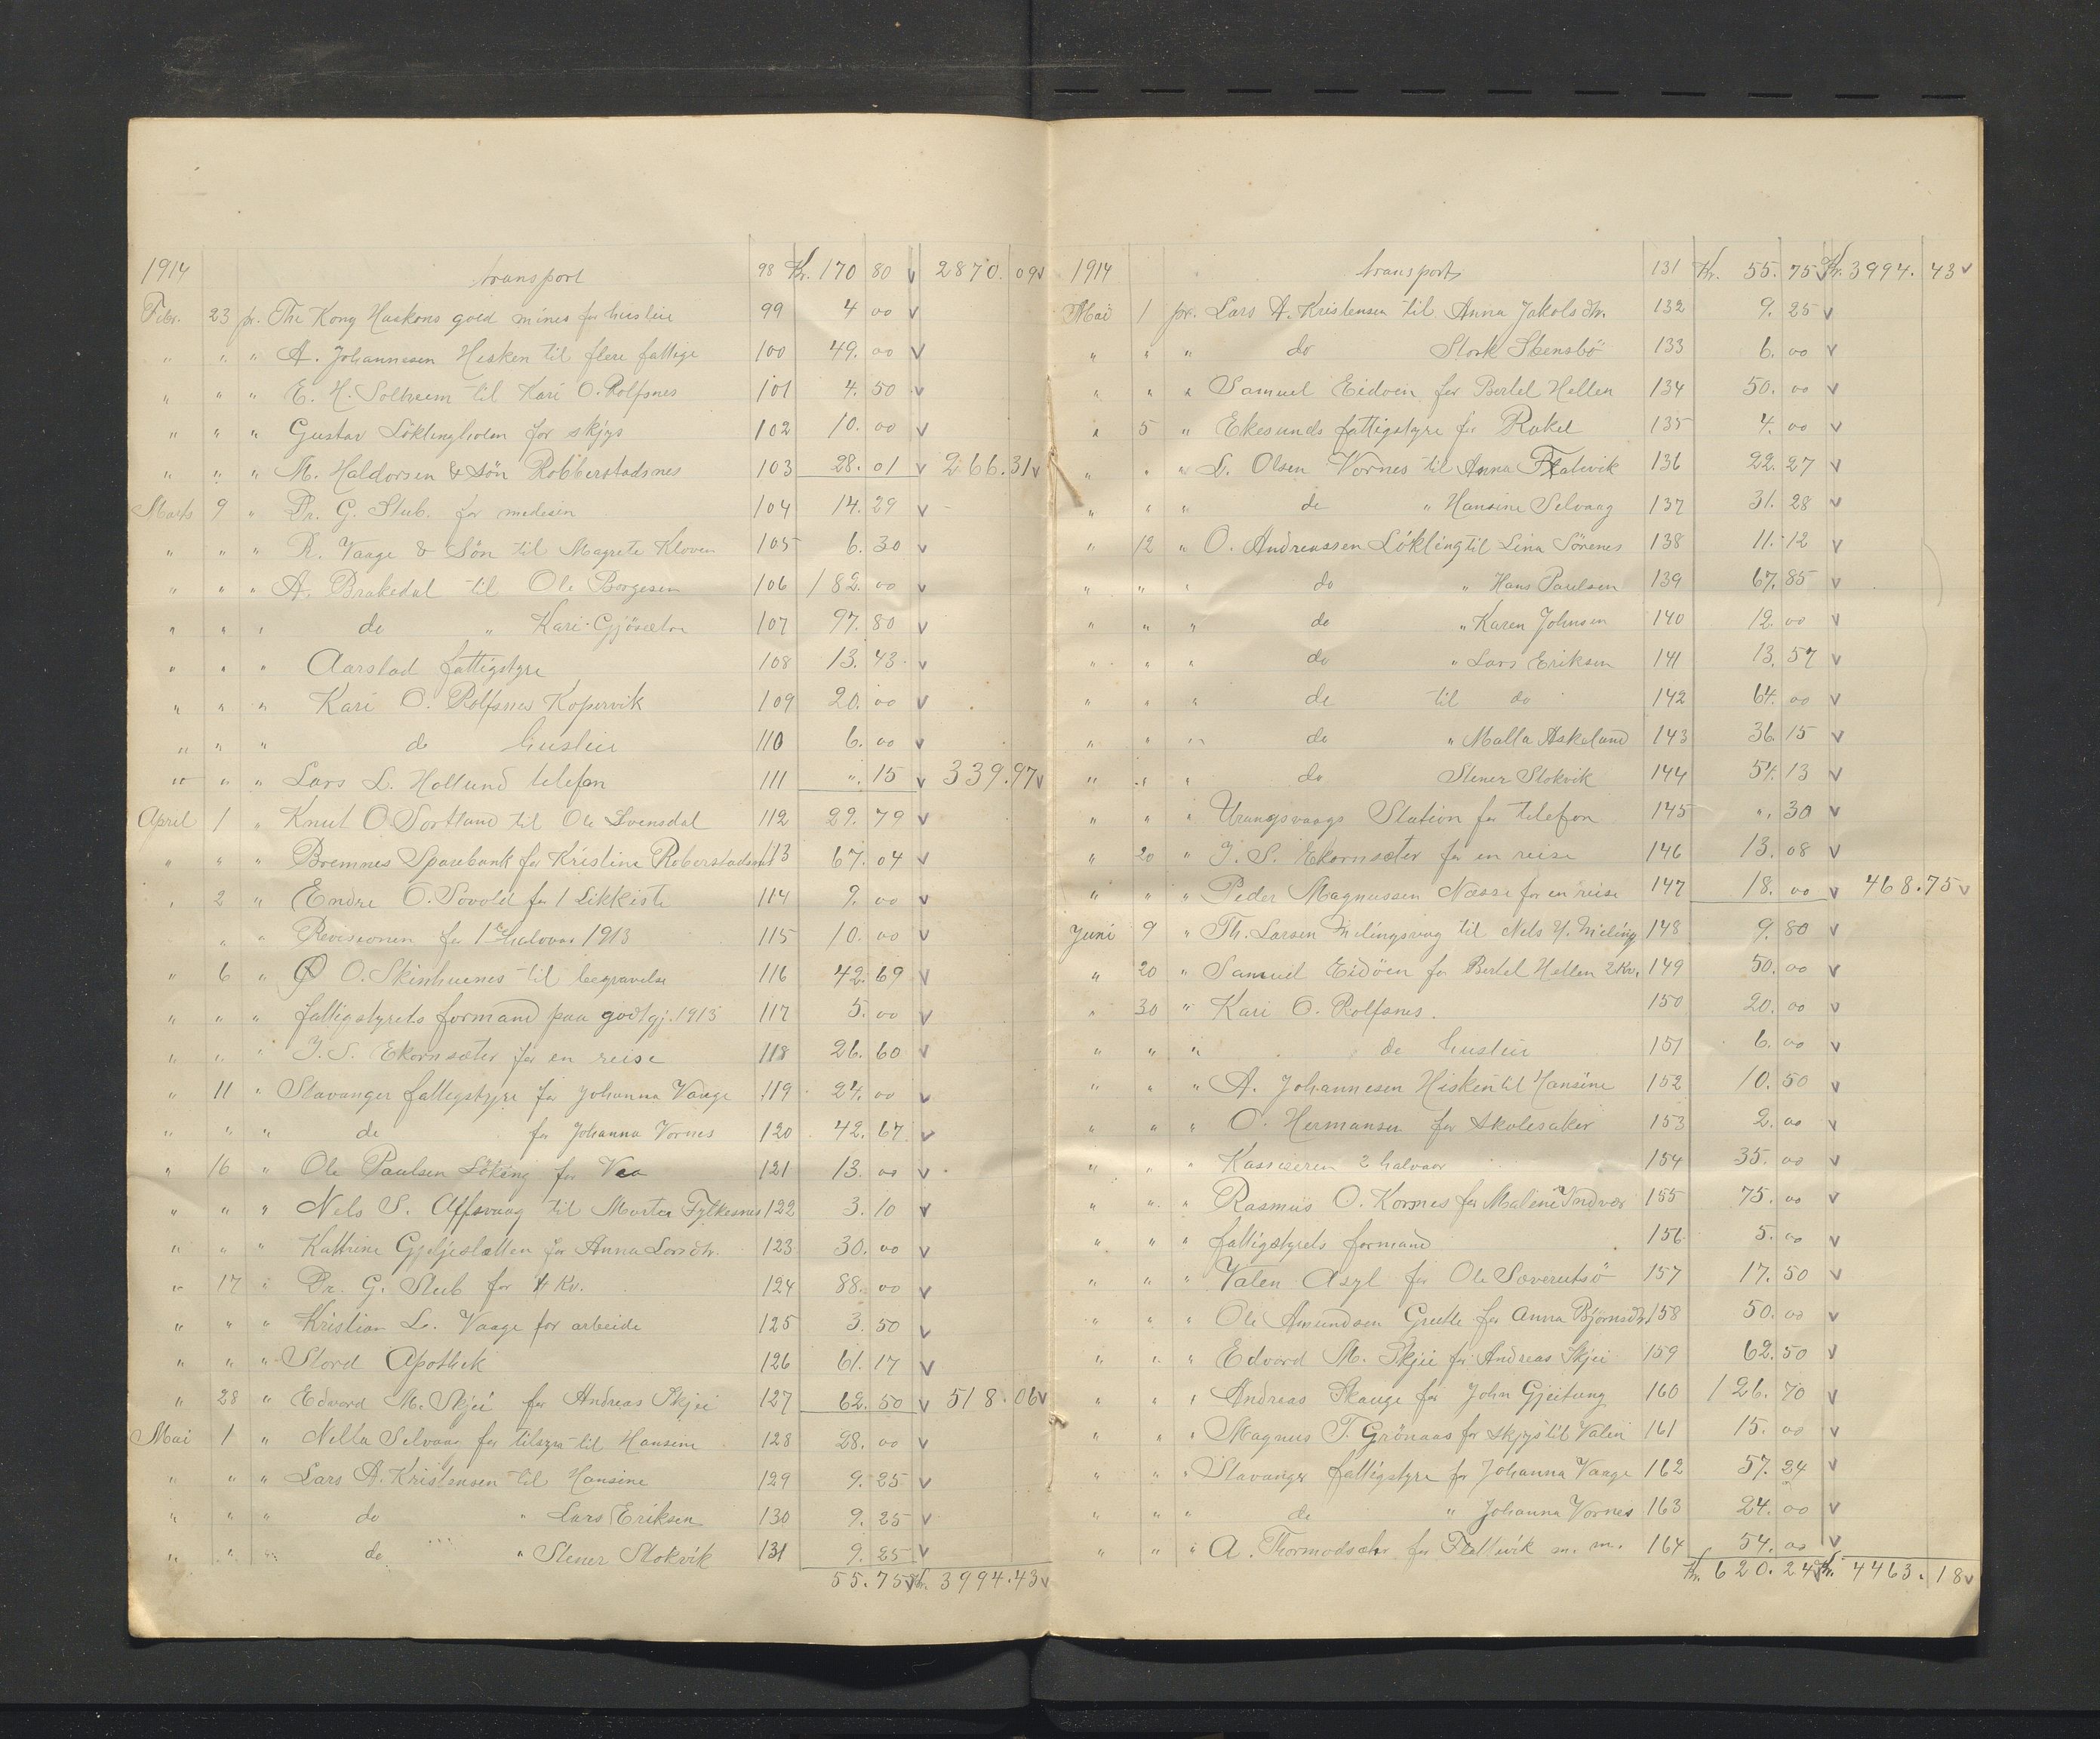 1914 transport 98 Kr. 170 80 v 2870. 09 v
Febr. 23 pr. The Kong Haakons gold mines for husleie 99 4 00 v
" " " A. Johannesen Hisken til flere fattige 100 49. 00 v
" " " E. H. Solheim til Kari O. Rolfsnes 101 4. 50 v
" " " Gustav Löklingholm for skjys 102 10. 00 v
" " " M. Haldorsen & Sön Robberstadsnes 103 28. 01 v 266. 31 v
Marts 9 " Dr. G. Stub. for medesin 104 14. 29 v
" " " R. Vaage & Sön til Magrete Kloven 105 6. 30 v
" " " A. Brakedal til Ole Borgesen 106 182. 00 v
" " " do " Kari Gjösæter 107 97. 80 v
" " " Aarstad fattigstyre 108 13. 43 v
" " " Kari O. Rolfsnes Kopervik 109 20. 00 v
" " " do husleie 110 6. 00 v
" " " Lars L. Hollund telefon 111 ". 15 v 339. 97 v
April 1 " Knut O. Sortland til Ole Svensdal 112 29. 79 v
" " " Bremnes Sparebank for Kristine Roberstadsnes 113 67. 04 v
" 2 " Endre O. Sovold for 1 Likkiste 114 9. 00 v
" " Revisionen for 1ste halvaar 1913 115 10. 00 v
" 6 " O. Skimhuenes til begravelse 116 42. 69 v
" " " fattigstyrets formand paa godtgj. 1913 117 5. 00 v
" " " J. S. Ekornsæter for en reise 118 26. 60 v
" 11 " Stavanger fattigstyre for Johanna Vaage 119 24. 00 v
" " " do for Johanna Vornes 120 42. 67 v
" 16 " Ole Paulsen Lökling for Vea 121 13. 00 v
" " " Nels S. Alfsvaag til Marta Fylkesnes 122 3. 10 v
" " " Kathrine Gjeljeslatten for Anna Larsdtr. 123 30. 00 v
" 17 " Dr. G. Stub for 4 Kv. 124 88. 00 v
" " " Kristian L. Vaage for arbeide 125 3. 50 v
" " " Stord Apothek 126 61. 17 v
" 28 " Edvard M. Skjei for Andreas Skjei 127 62. 50 v 518. 06 v
Mai 1 " Nella Selvaag for tilsyn til Hansine 128 28. 00 v
" " " Lars A. Kristensen til Hansine 129 9. 25 v
" " " do " Lars Eriksen 130 9. 25 v
" " " do " Stener Stokvik 131 9. 25 v
55. 75 v Kr. 3994. 43 v
1914 transport 131 Kr. 55. 75 v Kr. 3994. 43 v
Mai 1 pr. Lars A. Kristensen til Anna Jakobsdtr. 132 9. 25 v
" " " do Stork Stensbö 133 6. 00 v
" " " Samuel Eidöen for Bertel Hellen 134 50. 00 v
" 5 " Ekesunds fattigstyre for Rakel 135 4. 00 v
" " " L. Olsen Vornes til Anna Flatevik 136 22. 27 v
" " " do " Hansine Selvaag 137 31. 28 v
" 12 " O. Andreassen Lökling til Lina Sörenes 138 11. 12 v
" " " do " Hans Paulsen 139 67. 85 v
" " " do " Karen Johnsen 140 12. 00 v
" " " do " Lars Eriksen 141 13. 57 v
" " " do til do 142 64. 00 v
" " " do " Malla Askeland 143 36. 15 v
" " " do Stener Stokvik 144 54. 13 v
" " " Urangsvaags Station for telefon 145 ". 30 v
" 20 " J. S. Ekornsæter for en reise 146 13. 08 v
" " " Peder Magnussen Næsse for en reise 147 18. 00 v 468. 75 v
Juni 9 " Th. Larsen Mælingsvag til Nels H. Mæling 148 9. 80 v
" 20 " Samuel Eidöen for Bertel Hellen 2 Kv. 149 50. 00 v
" 30 " Kari O. Rolfsnes. 150 20. 00 v
" " " do husleie 151 6. 00 v
" " " A. Johannesen Hisken til Hansine 152 10. 50 v
" " " O. Hermansen for skolesaker 153 2. 00 v
" " " Kassiseren 2 halvaar 154 35. 00 v
" " " Rasmus O. Kornes for Malene Indvær 155 75. 00 v
" " " fattigstyrets formand 156 5. 00 v
" " " Valen Asyl for Ole Soverutsö 157 17. 50 v
" " " Ole Amundsen Grutle for Anna Björnsdtr. 158 50. 00 v
" " " Edvard M. Skjei for Andreas Skjei 159 62. 50 v
" " " Andreas Skauge for John Gjeitung 160 126. 70 v
" " " Magnus T. Grönaas for skjys til Valen 161 15. 00 v
" " " Stavanger fattigstyre for Johanna Vaage 162 57. 24 v
" " " do " Johanna Vornes 163 24. 00 v
" " " A. Thormodsæter for Flattevik m. m. 164 54. 00 v
Kr. 620. 24 v Kr. 4463. 18 v